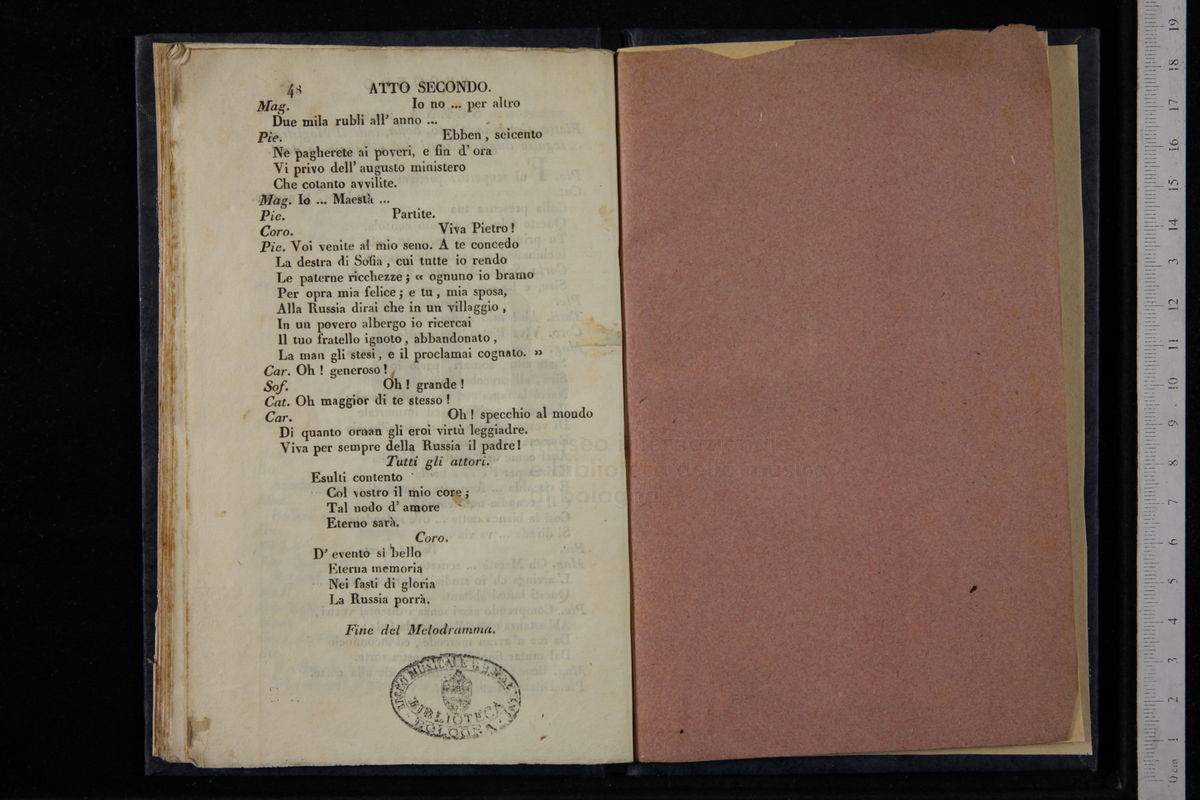 48 ATTO SECONDO.
Mag. Io no ... per altro
Due mila rubli all' anno ...
Pie. Ebben, seicento
Ne pagherete ai poveri, e fin d' ora
Vi privo dell' augusto ministero
Che cotanto avvilite.
Mag. Io ... Maestà ...
Pie. Partite.
Coro. Viva Pietro!
Pie. Voi venite al mio seno. A te concedo
La destra di Sofia, cui tutte io rendo
Le paterne ricchezze; « ognuno io bramo
Per opra mia felice; e tu, mia sposa,
Alla Russia dirai che in un villaggio,
In un povero albergo io ricercai
Il tuo fratello ignoto, abbandonato,
La man gli stesi, e il proclamai cognato. »
Car. Oh! generoso!
Sof. Oh! grande!
Cat. Oh maggior di te stesso!
Car. Oh! specchio al mondo
Di quanto ornan gli eroi virtù leggiadre.
Viva per sempre della Russia il padre!
Tutti gli attori.
Esulti contento
Col vostro il mio core;
Tal nodo d' amore
Eterno sarà.
Coro.
D' evento sì bello
Eterna memoria
Nei fasti di gloria
La Russia porrà.
Fine del Melodramma.
LICEO MUSICALE
BIBLIOTECA
BOLOGNA
museo internazionale
e biblioteca della musica
di bologna
0 cm 1 2 3 4 5 6 7 8 9 10 11 12 13 14 15 16 17 18 19